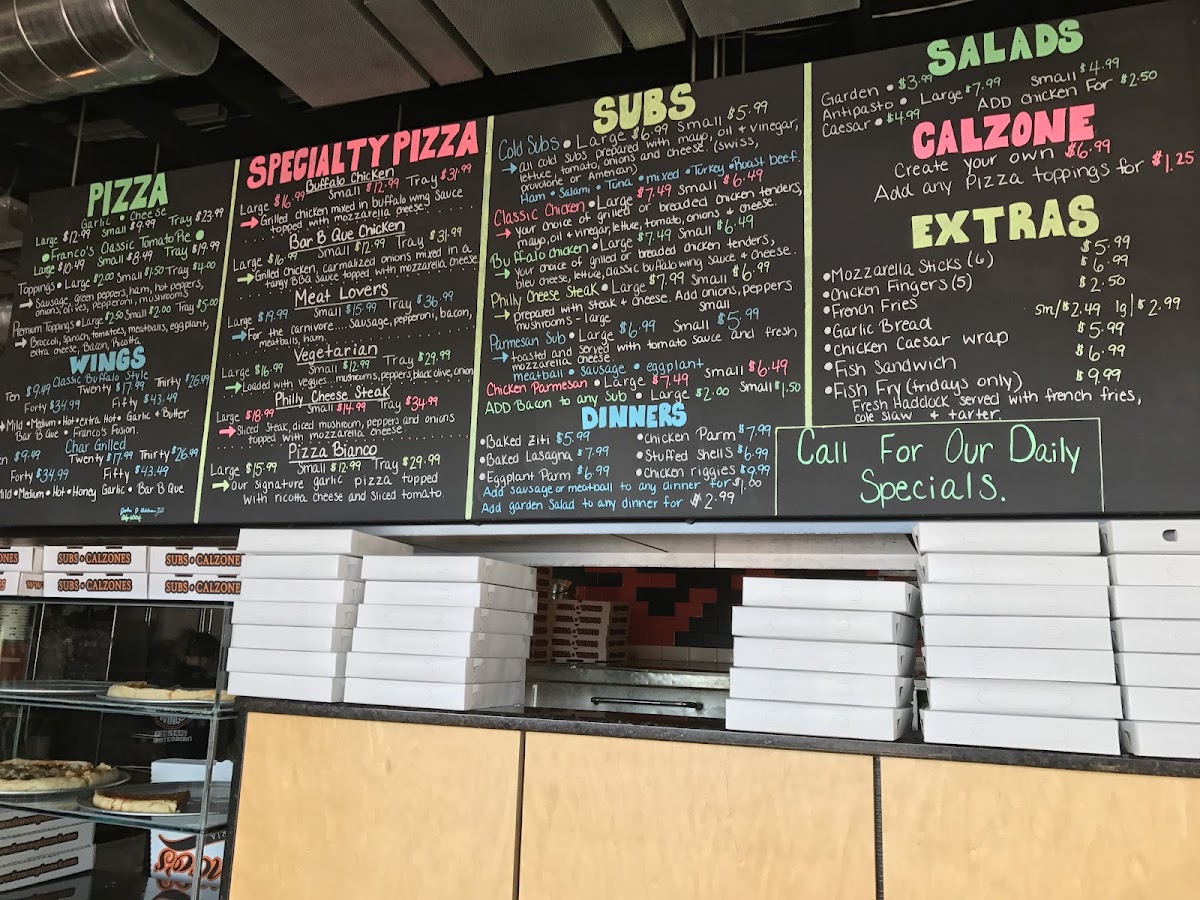 PIZZA
Garlic • Cheese
Large $12.99 Small $9.99 Tray $23.99
• Franco's Classic Tomato Pie •
Large $10.49 Small $8.49 Tray $19.99
Toppings • Large $2.00 Small $1.50 Tray $4.00
→ Sausage, green peppers, ham, hot peppers,
onions, olives, pepperoni, mushrooms
Premium Toppings • Large $2.50 Small $2.00 Tray $5.00
→ Broccoli, spinach, tomatoes, meatballs, eggplant,
extra cheese, Bacon, Ricotta.
WINGS
Classic Buffalo Style
Ten $9.49 Twenty $17.99 Thirty $26.49
Forty $34.99 Fifty $43.49
→ Mild • Medium • Hot • extra Hot • Garlic & Butter
Bar B Que • Franco's Fusion.
Char Grilled
en $9.49 Twenty $17.99 Thirty $26.49
Forty $34.99 Fifty $43.49
Mild • Medium • Hot • Honey Garlic • Bar B Que
SPECIALTY PIZZA
Buffalo Chicken
Large $16.99 Small $12.99 Tray $31.99
→ Grilled chicken mixed in buffalo wing sauce
topped with mozzarella cheese.
Bar B Que Chicken
Large $16.99 Small $12.99 Tray $31.99
→ Grilled chicken, carmalized onions mixed in a
tangy BBQ sauce topped with mozzarella cheese
Meat Lovers
Large $19.99 Small $15.99 Tray $36.99
→ For the carnivore.... Sausage, pepperoni, bacon,
meatballs, ham.
Vegetarian
Large $16.99 Small $12.99 Tray $29.99
→ Loaded with veggies...mushrooms, peppers, black olive, onion
Philly Cheese Steak
Large $18.99 Small $14.99 Tray $34.99
→ Sliced steak, diced mushroom, peppers and onions
topped with mozzarella cheese
Pizza Bianco
Large $15.99 Small $12.99 Tray $29.99
→ Our signature garlic pizza topped
with ricotta cheese and sliced tomato.
SUBS
Cold Subs • Large $6.99 Small $5.99
→ all cold subs prepared with mayo, oil & vinegar,
lettuce, tomato, onions and cheese. (swiss,
provolone or American)
Ham • Salami • Tuna • mixed • Turkey • Roast beef.
Classic Chicken • Large $7.49 Small $6.49
→ your choice of grilled or breaded chicken tenders,
mayo, oil & vinegar, lettuce, tomato, onions & cheese.
Buffalo chicken • Large $7.49 Small $6.49
→ Your choice of grilled or breaded chicken tenders,
bleu cheese, lettuce, classic buffalo wing sauce & cheese.
Philly Cheese Steak • Large $7.99 Small $6.99
→ prepared with steak & cheese. Add onions, peppers
mushrooms - large small
Parmesan Sub • Large $6.99 Small $5.99
→ toasted and served with tomato sauce and fresh
mozzarella cheese
meatball • sausage • eggplant
Chicken Parmesan • Large $7.49 Small $6.49
ADD Bacon to any Sub • Large $2.00 Small $1.50
DINNERS
• Baked Ziti $5.99
• Baked Lasagna $7.99
• Eggplant Parm $6.99
• Chicken Parm $7.99
• Stuffed Shells $6.99
• Chicken riggies $9.99
Add sausage or meatball to any dinner for $1.00
Add garden Salad to any dinner for $2.99
SALADS
Garden • $3.99
Antipasto • Large $7.99 Small $4.99
Caesar • $4.99 ADD chicken For $2.50
CALZONE
Create your own $6.99
Add any Pizza toppings for $1.25
EXTRAS
• Mozzarella Sticks (6) $5.99
• Chicken Fingers (5) $6.99
• French Fries $2.50
• Garlic Bread sm/$2.49 lg/$2.99
• chicken Caesar wrap $5.99
• Fish Sandwich $6.99
• Fish Fry (fridays only) $9.99
Fresh Haddock served with french fries,
cole slaw & tarter
Call For Our Daily
Specials.
ONES
SUBS • CALZONES
SUBS • CALZONES
SUBS • CALZONES
SUBS • CALZONES
PIZZA • WINGS
WINGS